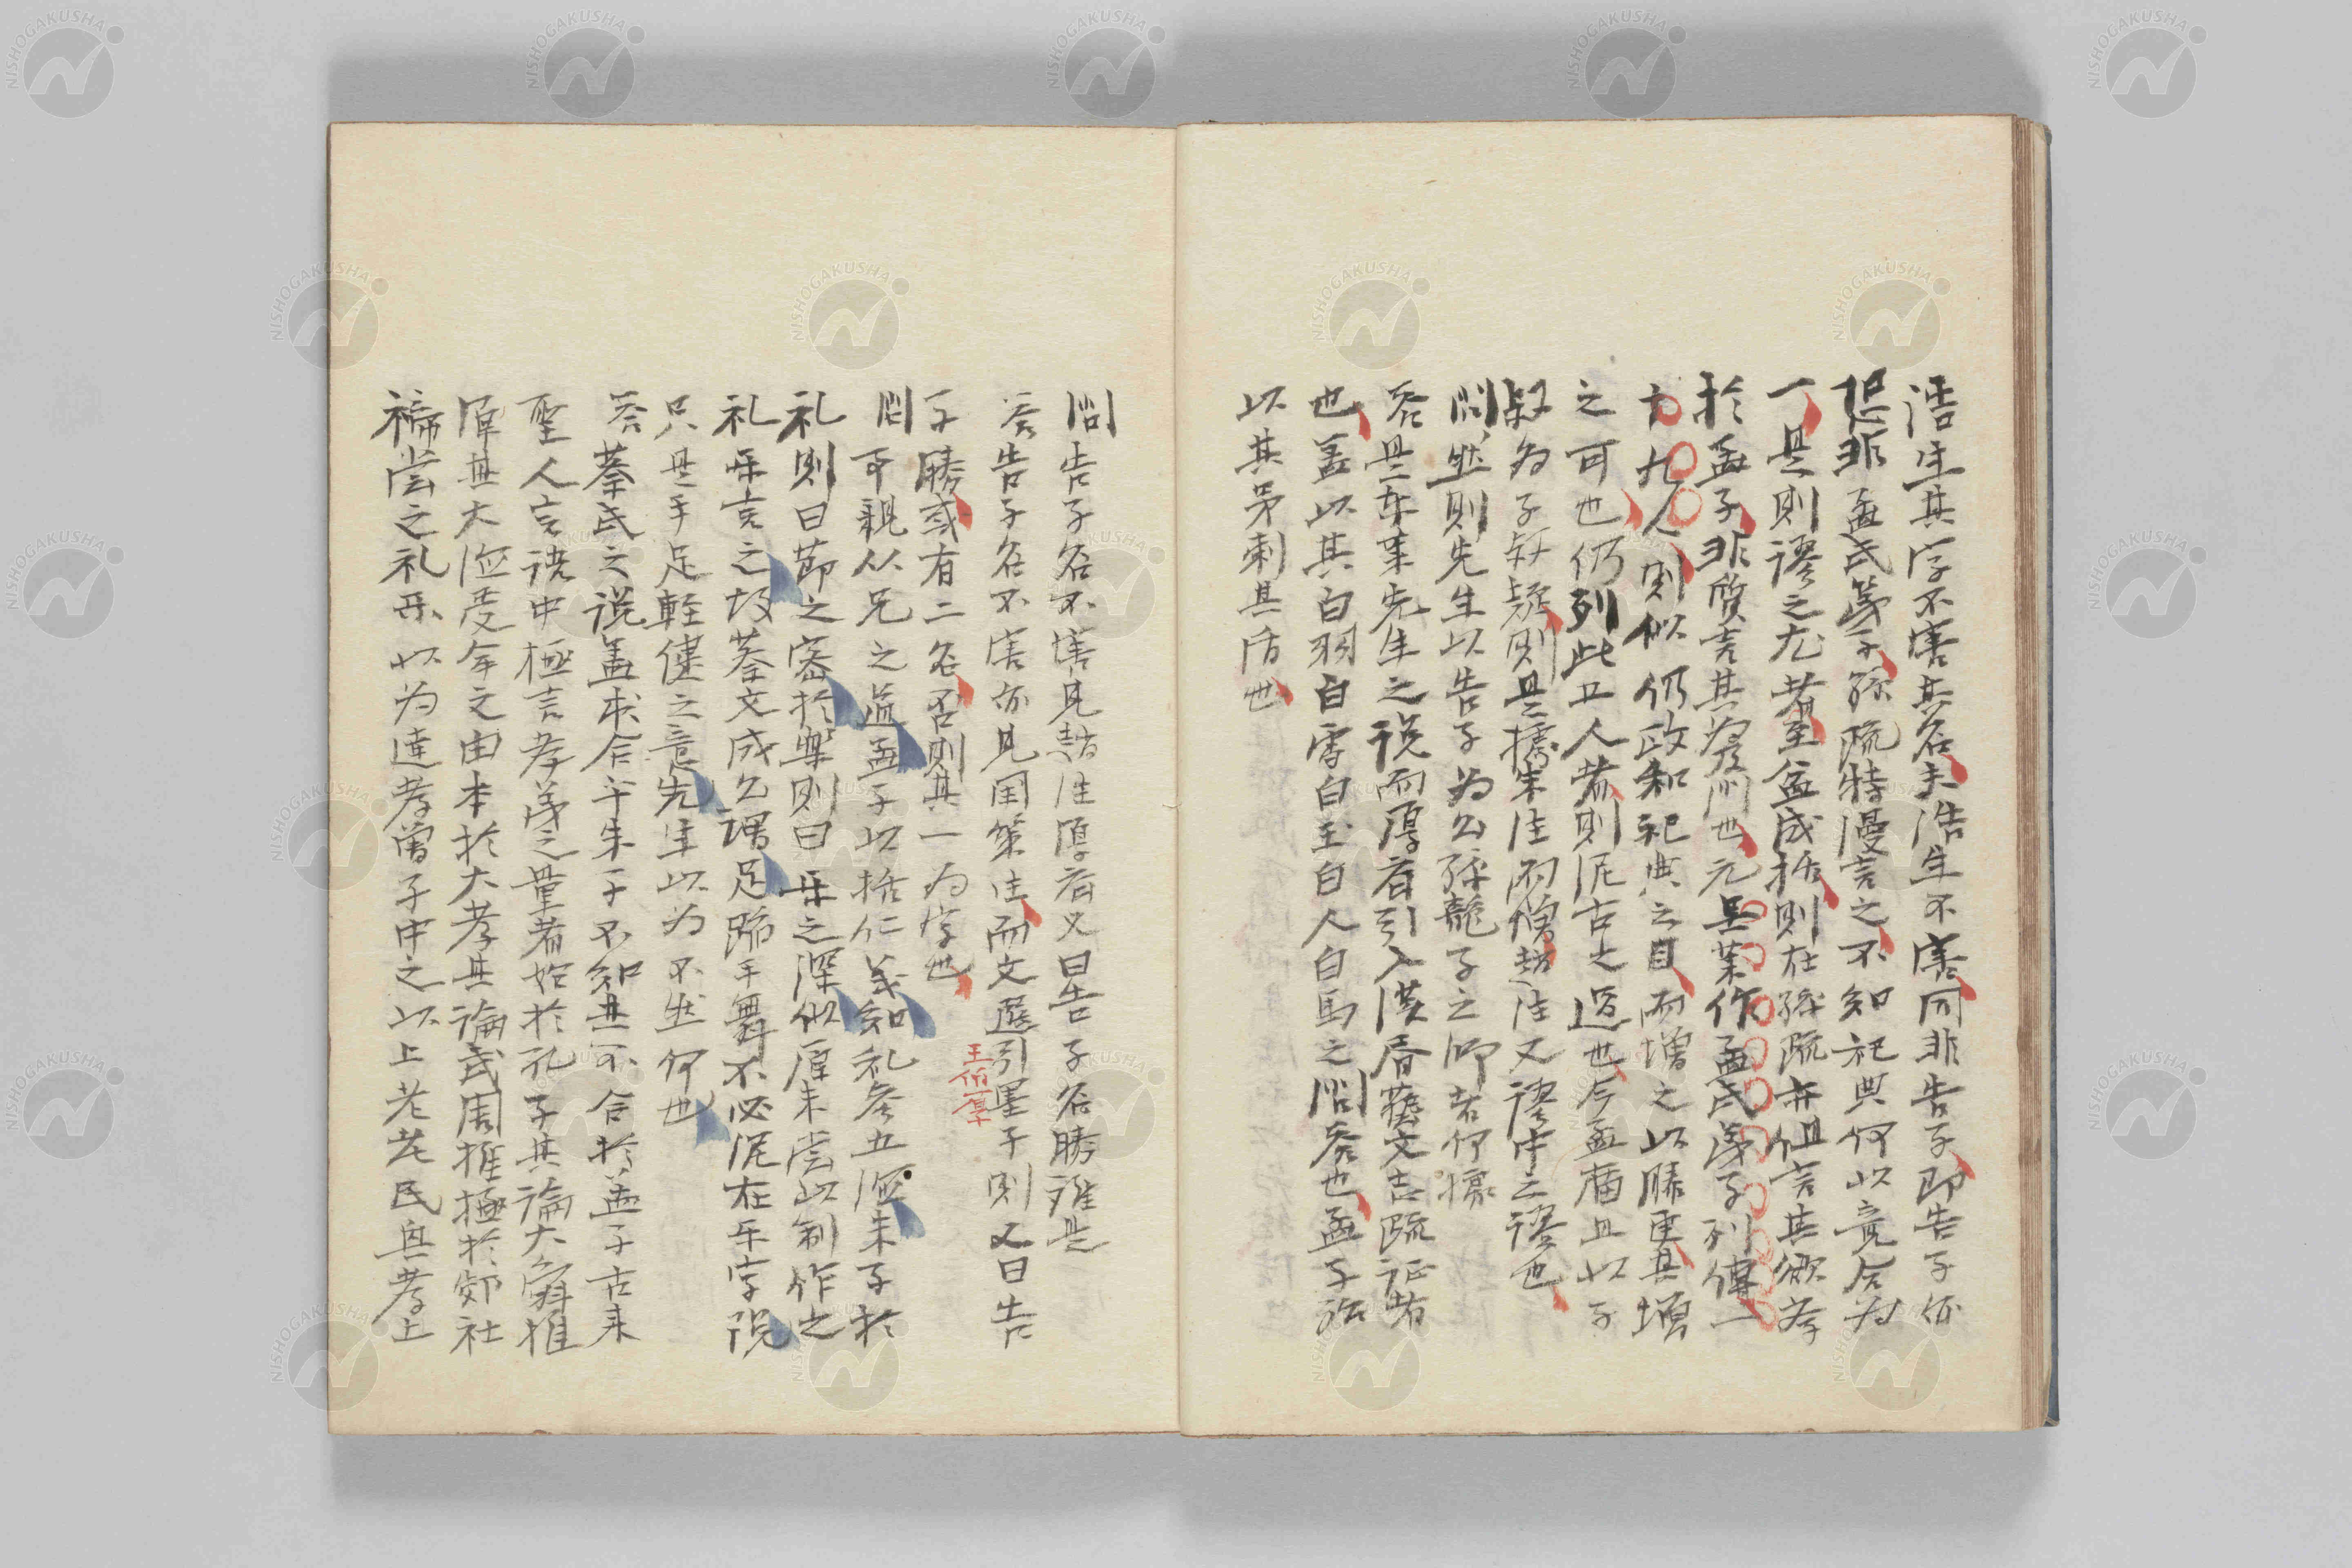 浩生其字不害其名夫浩生不害同非告子即告子亦
恐非孟氏弟子孫疏特漫言之不知祀典何以竟合为
一是則謬之尤者至盆成括則在孫疏亦但言其欲孝
於孟子非質言其为門也元吴莱作孟氏弟子列傳一
十九人則似仍政和祀典之目而增之以滕更其增
之可也仍列此五人者則泥古之過也今孟廟且以子
叔为子叔疑則是據朱注而僧趙注又謬中之謬也
問然則先生以告子为公孫龍子之师者何據
答是东莱先生之说而厚斎引入漢唐藝文志疏证者
也盖以其白羽白雪白玉白人白馬之問答也孟子殆
以其矛刺其盾也
問告子名不害見趙注厚斎又曰告子名勝誰是
答告子名不害亦見国策注而文選引墨子則又曰告
子勝或有二名否則其一为字也
王伯厚
問事親从兄之道孟子以括仁義知礼乐五德朱子於
礼則曰節之密於樂則曰乐之深似原未尝以制作之
礼乐言之故蔡文成公謂足蹈手舞不必泥在乐字说
只是手足軽健之意先生以为不然何也
答蔡氏之说盖求合乎朱子不知其不合於孟子古来
聖人言语中極言孝弟之量者始於孔子其論大舜推
原其大德受命之由本於大孝其論武周推極於郊社
禘尝之礼乐以为達孝曾子申之以上老老民興孝上
NISHOGAKUSHA